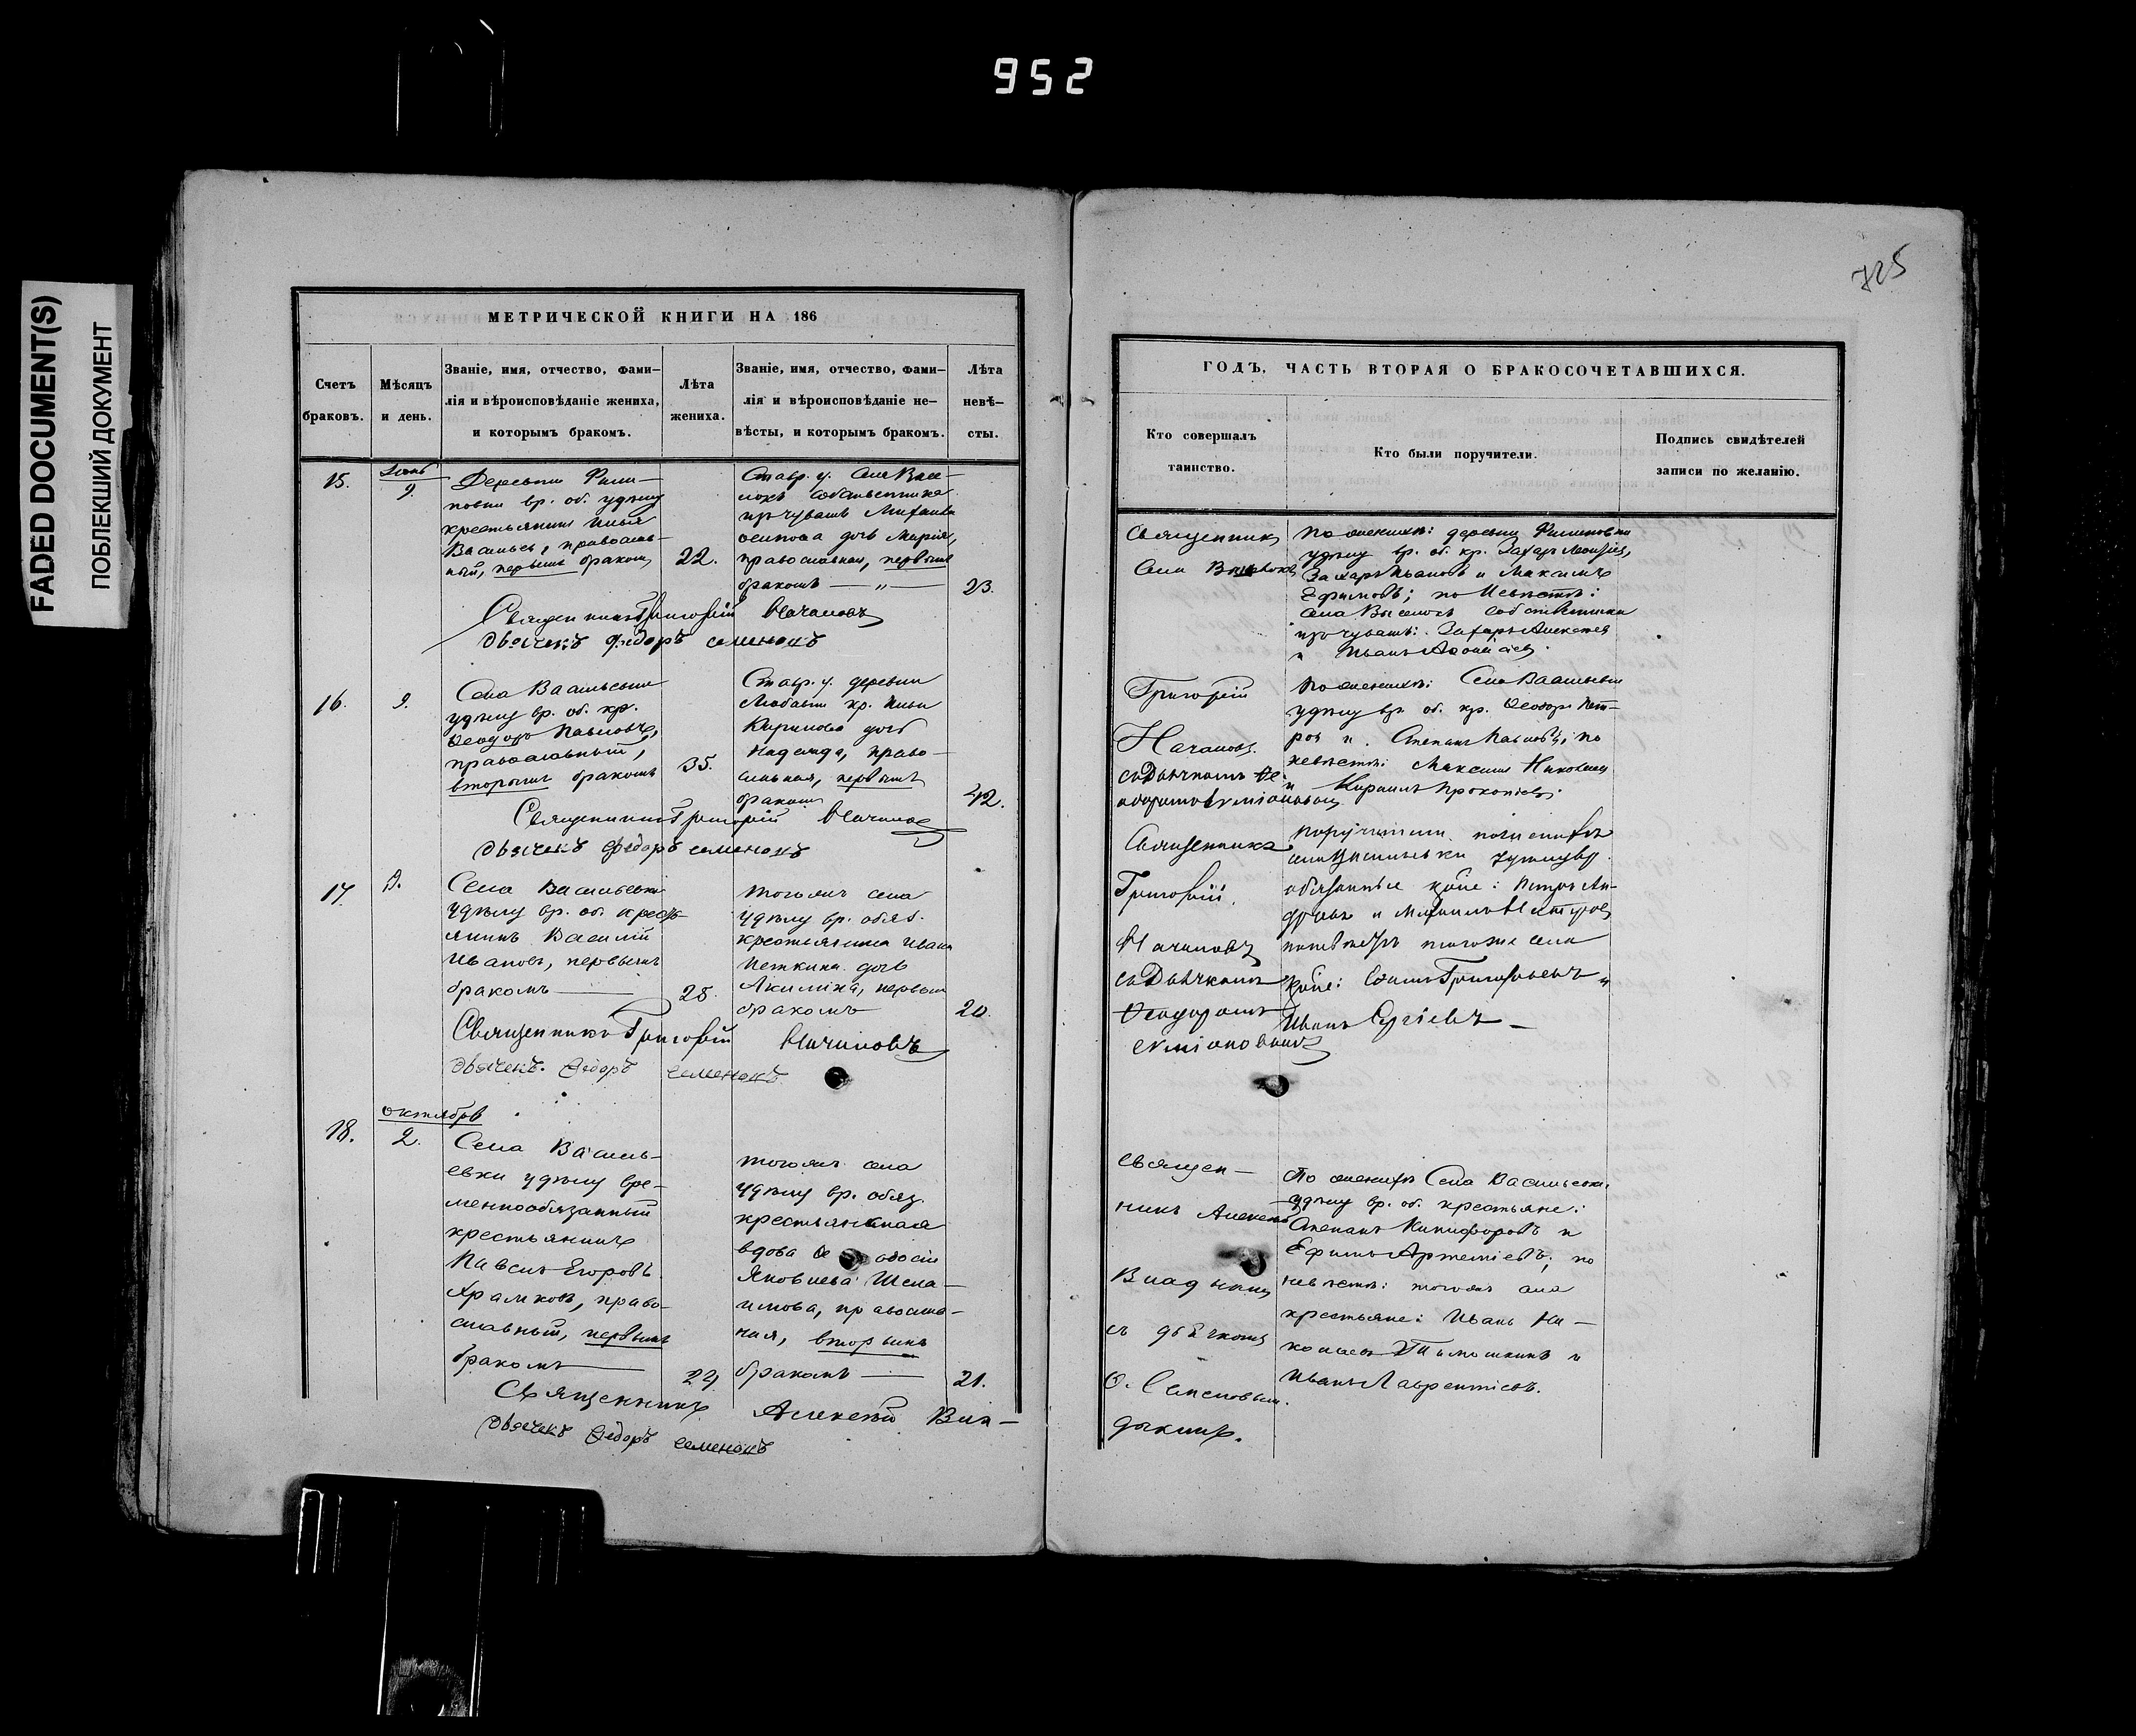 952
FADED DOCUMENT(S)
ПОБЛЕКШИЙ ДОКУМЕНТ
МЕТРИЧЕСКОЙ КНИГИ НА 186
Счетъ браковъ.
Мѣсяцъ и день.
Званіе, имя, отчество, фами-
лія и вѣроисповѣданіе жениха,
и которымъ бракомъ.
Лѣта жениха.
Званіе, имя, отчество, фами-
лія и вѣроисповѣданіе не-
вѣсты, и которымъ бракомъ.
Лѣта
невѣ-
сты.
15.
9.
Деревни Фили-
повки вр. об. удѣлу
крестьянинъ Илья
Васильевъ, православ-
ный, первымъ бракомъ
22.
Ставр. у. села Высе-
локъ собственника
изъ чувашъ Михаила
Осипова дочь Марія,
православная, первымъ
бракомъ — „ —
23.
Священникъ Григорій Началовъ
дьячекъ Федоръ семеновъ
16.
9.
Села Васильевки
удѣлу вр. об. кр.
Ѳеодоръ Павловъ,
православный,
вторымъ бракомъ
35.
Ставр. у. деревни
кр. Ильи
Кирилова дочь
Надежда, право-
славная, первымъ
бракомъ
42.
Священникъ Григорій Началовъ
дьячекъ Федоръ семеновъ
17.
9.
Села Васильевки
удѣлу вр. об. кресть-
янинъ Василій
Ивановъ, первымъ
бракомъ —
25.
тогожъ села
удѣлу вр. обяз.
крестьянина Ивана
Петкина дочь
Акилина, первым
бракомъ
20.
Священникъ Григорій Началовъ
дьячекъ. Федоръ семеновъ
октябрь
18.
2.
Села Василь-
евки удѣлу вре-
меннообязанный
крестьянинъ
Павелъ Егоровъ
Храмковъ, право-
славный, первымъ
бракомъ —
22,
тогожъ села
удѣлу вр. обяз.
крестьянская
вдова
Яковлева
православ-
ная, вторымъ
бракомъ —
21.
Священникъ Алексѣй Вла-
дыкинъ.
дьячекъ Федоръ семеновъ
725
ГОДЪ. ЧАСТЬ ВТОРАЯ О БРАКОСОЧЕТАВШИХСЯ.
Кто совершалъ
таинство.
Кто были поручители.
Подпись свидѣтелей
записи по желанію.
Священникъ
Села
Григорій
Началовъ
съ Дьячкомъ Ѳе-
одоромъ Симіоновым
По женихѣ: деревни Филиповки
удѣлу вр. об. кр. Захаръ
Захаръ Ивановъ и Максимъ
Ефимовъ; по Невѣстѣ:
села Выселокъ собственники
изъ чувашъ: Захаръ Алексѣев
и Иванъ
По женихѣ: Села Васильевки
удѣлу вр. об. кр. Ѳеодоръ Пет-
ровъ и Степанъ Павловъ, по
невѣстѣ: Максимъ Николаев
и Кирилъ Прокопіевъ.
Священника
Григорій.
Началовъ
съ Дьячкомъ
Ѳеодоромъ
Симіоновым
поручители по женихѣ
села Васильевки удѣлу вр.
обязанные кр-не: Петръ Ан-
и Михаилъ Петров
по невѣстѣ тогоже села
кр-не: Григорьевъ и
Иванъ Сергіевъ —
Священ-
никъ Алексѣй
Владыкин
съ дьячкомъ
Ѳ. Семеновым.
По женихѣ Села Васильевки
удѣлу вр. об. крестьяне:
Степанъ Никифоровъ и
Ефимъ Артеміевъ; по
невѣстѣ: тогожъ села
крестьяне: Иванъ Ни-
колаевъ Тимошкинъ и
Иванъ Лаврентіевъ.